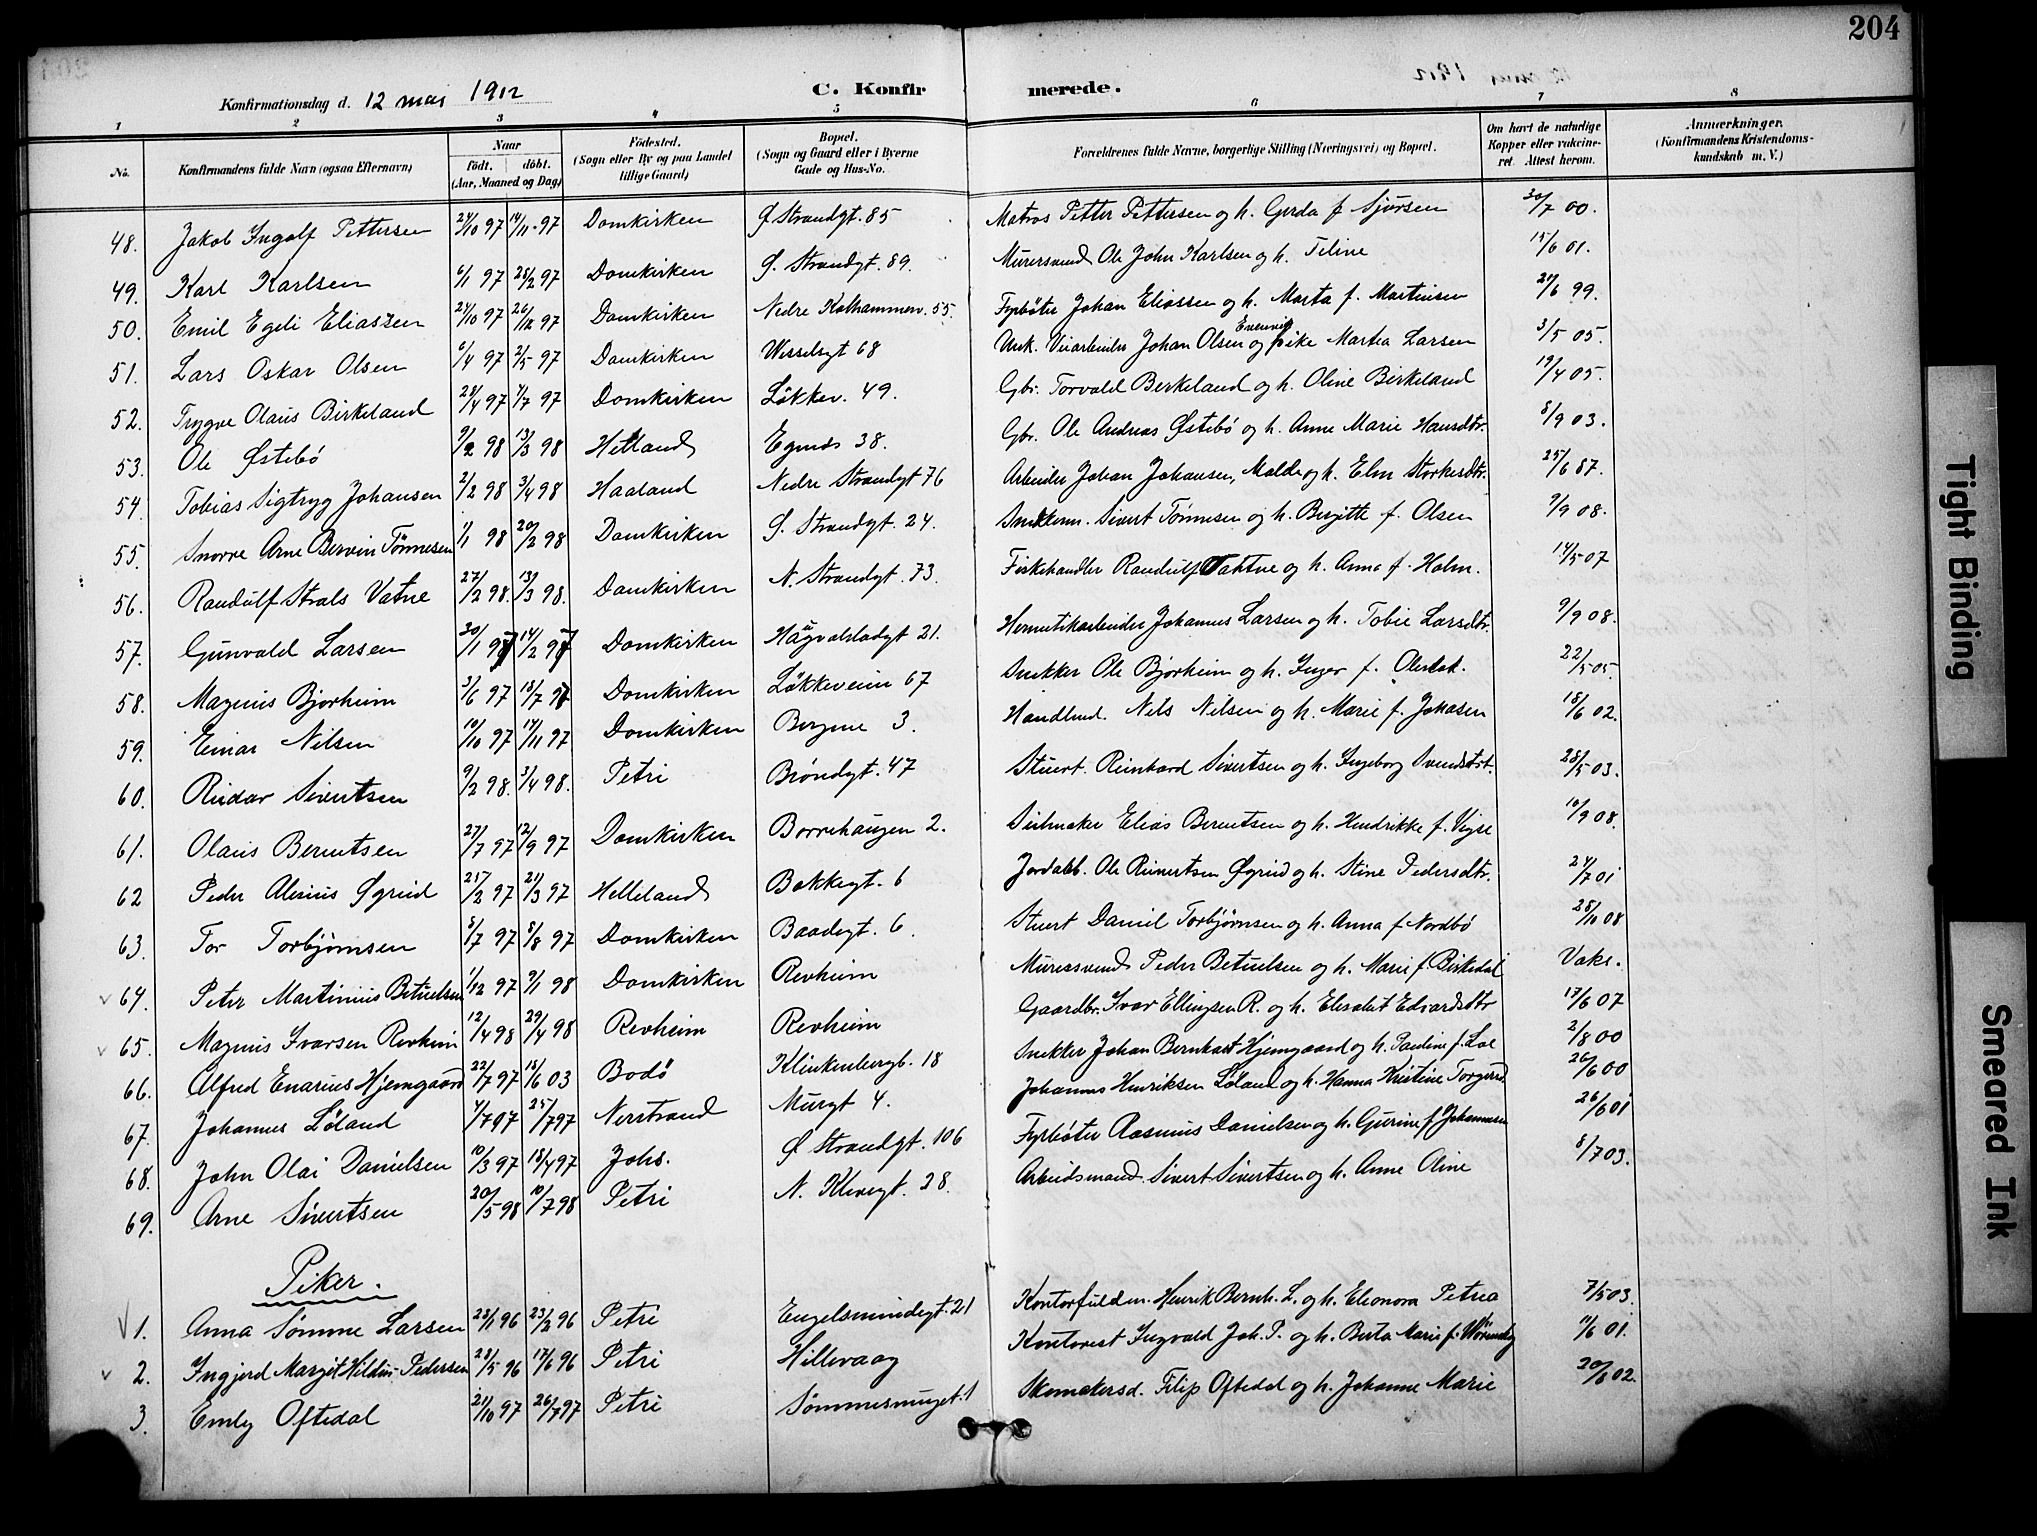 204
Konfirmationsdag d. 12 mai 1912 C. Konfirmerede.
1 2 3 4 5 6 7 8
No. Konfirmandens fulde Navn (ogsaa Efternavn) Naar født. døbt. (Aar, Maaned og Dag) Fødested. (Sogn eller By og paa Landet tillige Gaard) Bopæl. (Sogn og Gaard eller i Byerne Gade og Hus-No. Forældrenes fulde Navne, borgerlige Stilling (Næringsvei) og Bopæl. Om havt de naturlige Kopper eller vakcineret. Attest herom. Anmærkninger. (Konfirmandens Kristendomskundskab m. V.)
48. Jakob Ingolf Pettersen 24/10 97 14/11 97 Domkirken Ø Strandgt. 85 Matros Petter Pettersen og h. Gerda f Sjursen 30/7 00.
49. Karl Karlsen 6/1 97 28/2 97 Domkirken Ø. Strandgt. 89. Murersvend Ole John Karlsen og h. Teline 15/6 01.
50. Emil Egeli Eliassen 24/10 97 26/12 97 Domkirken Nedre Kolhammerv. 55. Fyrbøter Johan Eliassen og h. Marta f. Martinsen 21/6 99.
51. Lars Oskar Olsen 6/4 97 2/5 97 Domkirken Wesselsgt 68 Unk. Veiarbeider Johan Olsen og pike Martea Larsen 3/5 05.
52. Trygve Olaus Birkeland 28/4 97 4/7 97 Domkirken Løkkev. 49. Gbr. Torvald Berkeland og h. Oline Birkeland 19/4 05.
53. Ole Østebø 9/2 98 13/3 98 Hetland Egnds 38. Gbr. Ole Andreas Østebø og h. Anne Marie Hansdtr. 8/9 03.
54. Tobias Sigtryg Johansen 2/2 98 3/4 98 Haaland Nedre Strandgt 76 Arbeider Johan Johansen, Malde og h. Elen Storkersdtr. 25/6 87.
55. Snorre Arne Bervin Tønnesen 1/1 98 20/2 98 Domkirken Ø. Strandgt. 24. Snekkerm. Sivert Tønnesen og h. Bergitte f. Olsen 9/9 08.
56. Randulf Strals Vatne 27/2 98. 13/3 98. Domkirken N. Strandgt. 73. Fiskehandler Randulf Vahtne og h. Anna f. Holm. 14/5 07
57. Gunvald Larsen 30/1 97 14/2 97 Domkirken Haugvaldstadgt 21. Hermetikarbeider Johannes Larsen og h. Tobie Larsdtr. 9/9 08.
58. Magnus Bjorheim 3/6 97 18/7 97 Domkirken Løkkeveien 67 Snekker Ole Bjørheim og h. Inger f. 22/5 05.
59. Einar Nilsen 10/10 97 14/11 97 Domkirken Bergene 3. Handlend. Nels Nilsen og h. Marie f. Johasen 18/6 02.
60. Reidar Sivertsen 9/2 98. 3/4 98. Petri Brøndgt. 47 Stuert. Reinhard Sivertsen og h. Ingeborg Svendsdtr. 28/5 03.
61. Olaus Berentsen 27/7 97 12/9 97 Domkirken Borrehaugen 2. Seilmaker Elias Berentsen og h. Hendrikke f. Vigre 10/9 08.
62 Peder Alerius Øgreid 25/2 97 21/3 97 Helleland Bakkegt. 6 Jordabb. Ole Reinertsen Øgreid og h. Stine Pedersdtr. 24/7 01
63. Tor Torbjørnsen 5/7 97 8/8 97 Domkirken Baadegt. 6. Stuert Daniel Torbjørnsen og h. Anna f Nordbø 28/11 08
64. Peter Martinius Betuelsen 1/12 97 9/1 98 Domkirken Revheim Murersvend Peder Betuelsen og h. Marie f. Birkedal Vakc.
65. Magnus Ivarsen Revheim 12/4 98 29/4 98 Revheim Revheim Gaardbr. Ivar Ellingsen R. og h. Elisabet Edvardsdtr 17/6 07
66. Alfred Enarius Hjemgaard 22/7 97 18/6 03 Bodø Klinkenbergb. 18 Snekker Johan Bernhart Hjemgaard og h. Pauline f. Loe 2/8 00
67. Johannes Løland 4/7 97 25/7 97 Nerstrand Murgt 4. Johannes Henriksen Løland og h. Hanna Kristine Torgersd. 26/6 00
68. John Olai Danielsen 10/3 97 18/4 97 Johs. Ø Strandgt. 106 Fyrbøter Rasmus Danielsen og h. Gurine f Johannesen 26/6 01
69. Arne Sivertsen 20/5 98 10/7 98 Petri N. Klevegt. 28. Arbeidsmand. Sivert Sivertsen og h. Anne Oline 8/7 03.
Piker.
1. Anna Sømme Larsen 28/1 96 23/2 96 Petri Engelsmindegt. 21 Kontorfuldm. Henrik Bernh. L. og h. Eleonora Petrea 7/5 03.
2. Ingjerd Margit Hildin Pedersen 28/5 96 17/6 96 Petri Hillevaag Kontorist Ingvald Joh. P. og h. Berta Marie f. 11/6 01.
3. Emly Oftedal 21/10 97 26/7 97 Petri Sømmesmuget. 1 Skomakersd. Filip Oftedal og h. Johanne Marie 20/6 02.
Tight Binding
Smeared Ink